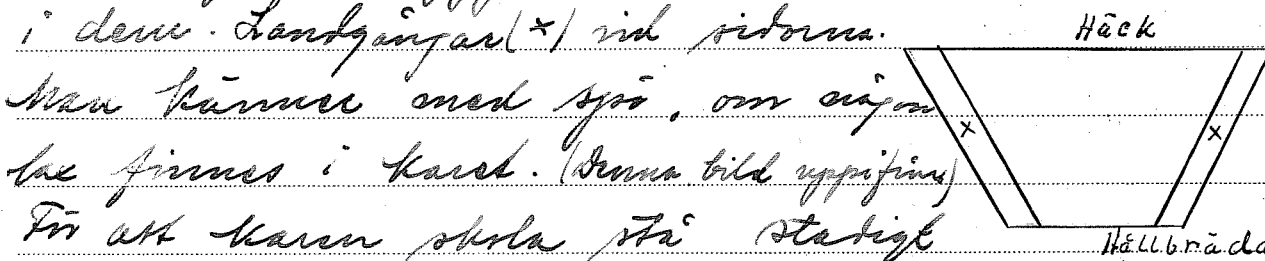 i dem. Landgångar (x) vid sidorna.
Häck
Man känner med spö, om någon
x x
lax finnes i karet. (Denna bild uppifrån)
För att karen skola stå stadigt
Hällbräda